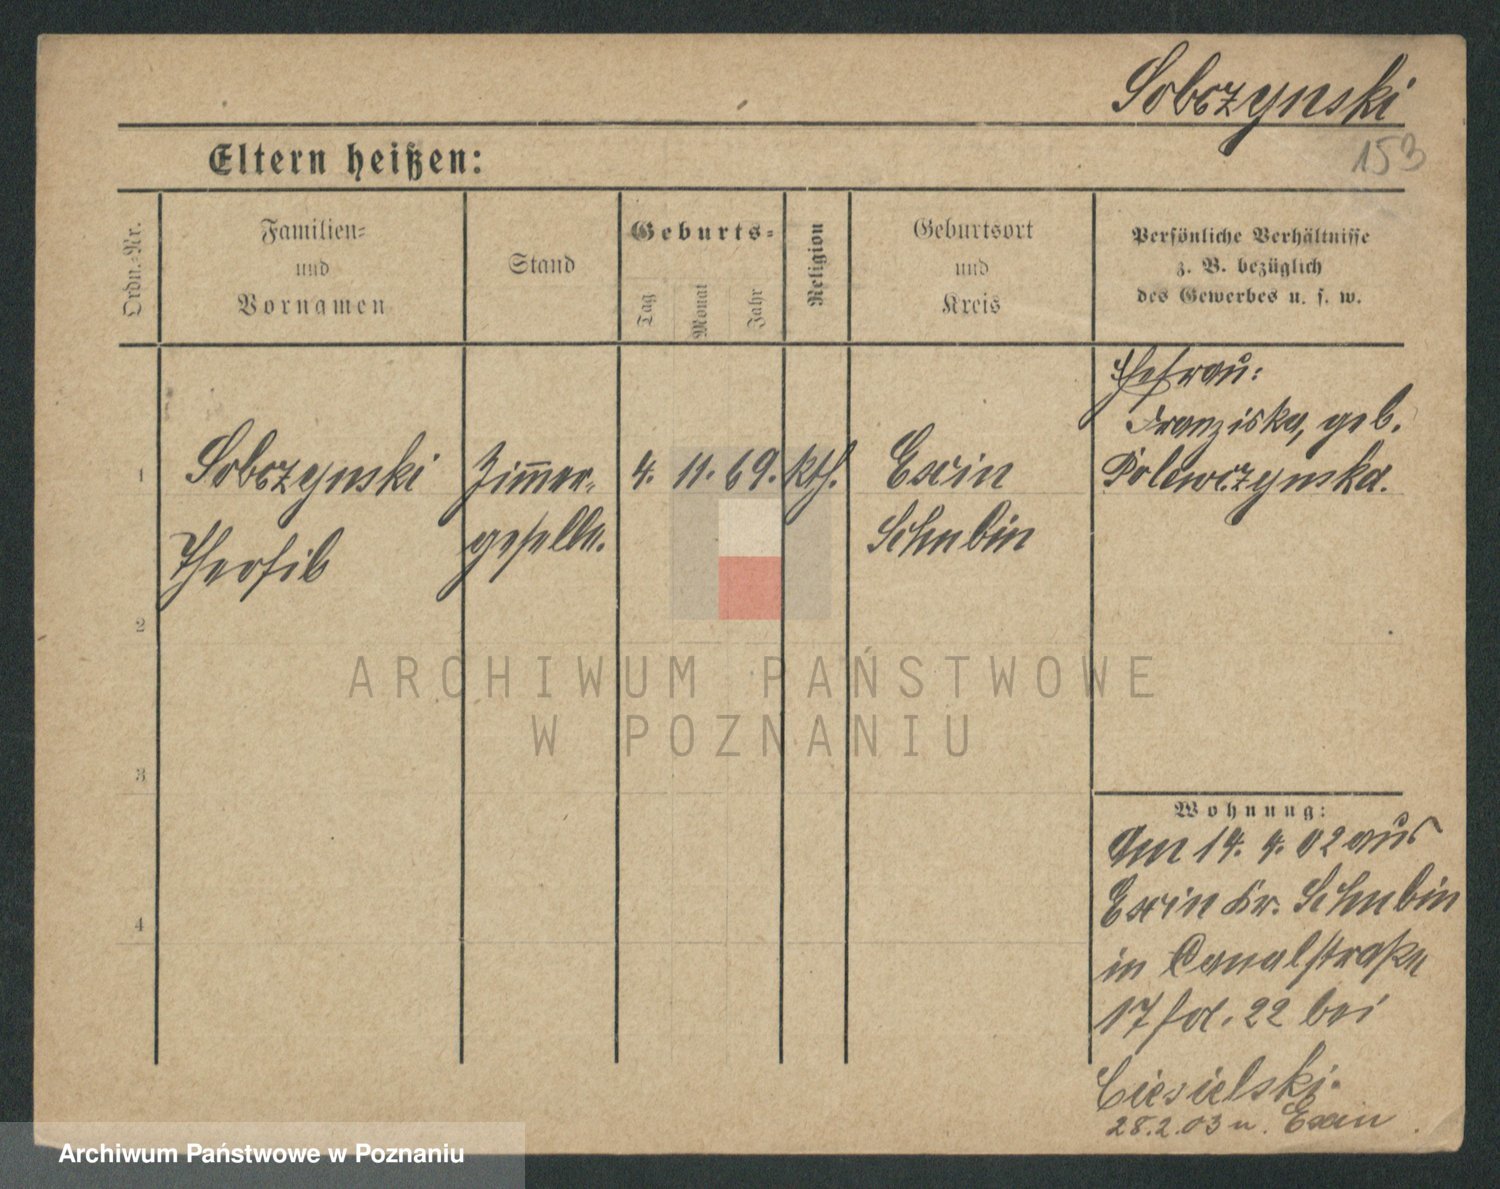 Sobczynski
153
Eltern heißen:
Ordn.-Nr.
Familien-
und
Vornamen
Stand
Geburts-
Tag
Monat
Jahr
Religion
Geburtsort
und
Kreis
Persönliche Verhältnisse
z. B. bezüglich
des Gewerbes u. s. w.
Ehefrau:
Franziska, geb.
Polewczynska.
1 Sobczynski Zim̅er- 4. 11. 69. kth. Exin
Theofil geselle. Schubin
2
ARCHIWUM PAŃSTWOWE
W POZNANIU
3
4
Wohnung:
Am 14. 4. 02 aus
Exin Kr. Schubin
in Canalstraße
17 bei
Ciesielski.
28.2.03 n. Exin
Archiwum Państwowe w Poznaniu